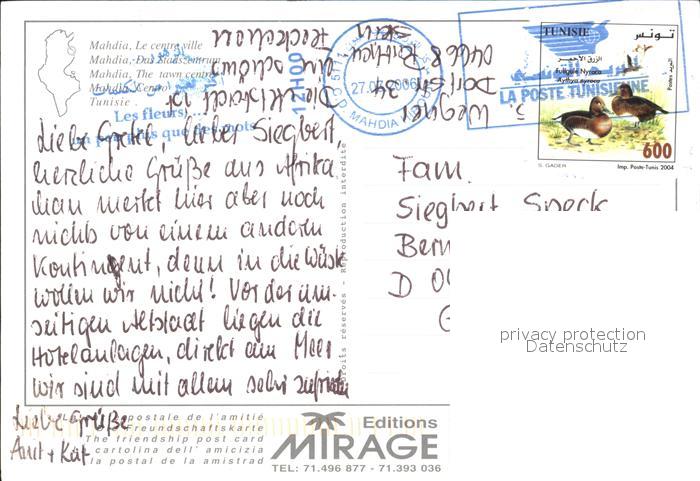 Mahdia, Le centre ville
Mahdia, Das Stadtzentrum
Mahdia, The tawn centre
Mahdia, Centro
Tunisie.
Les fleurs...
plus que des mots
12H00
27.0 2006
MAHDIA
TUNISIE
تونس
الزرق الأحمر
Fuligule Nyroca
Aythya nyroca
البريد التونسي
LA POSTE TUNISIENNE
600
S. GADER
Imp. Poste-Tunis 2004
Liebe Grete, lieber Siegbert,
herzliche Grüße aus Afrika.
Man merkt hier aber noch
nichts von einem anderen
Kontingent, denn in die Wüste
wollen wir nicht! Vor der um-
seitigen Altstadt liegen die
Hotelanlagen, direkt am Meer
wir sind mit allem sehr zufrieden
Die Altstadt ist
Liebe Grüße
Wegner
Dorfstr. 34
Fam.
Siegbert Speck
Bern
D 0
Droits réservés - Reproduction interdite
postale de l'amitié
Freundschaftskarte
The friendship post card
cartolina dell' amicizia
la postal de la amistrad
Editions
MIRAGE
TEL: 71.496 877 - 71.393 036
privacy protection
Datenschutz